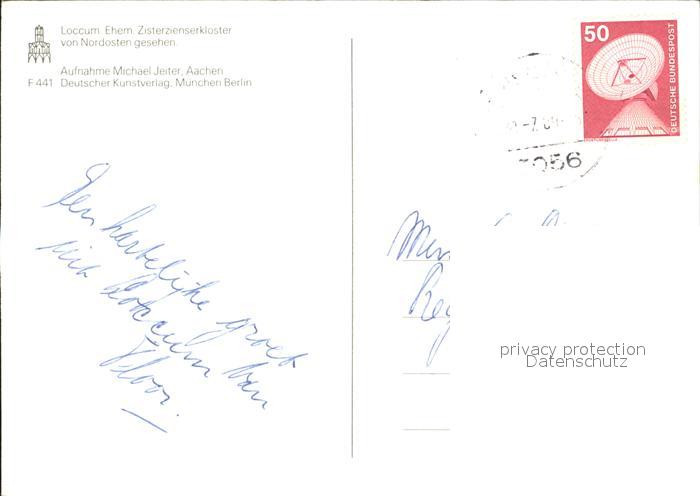 Loccum. Ehem. Zisterzienserkloster
von Nordosten gesehen.
Aufnahme Michael Jeiter, Aachen
F 441 Deutscher Kunstverlag, München Berlin
50
DEUTSCHE BUNDESPOST
056
Een hartelijke groet
uit Loccum van
Floor.
privacy protection
Datenschutz